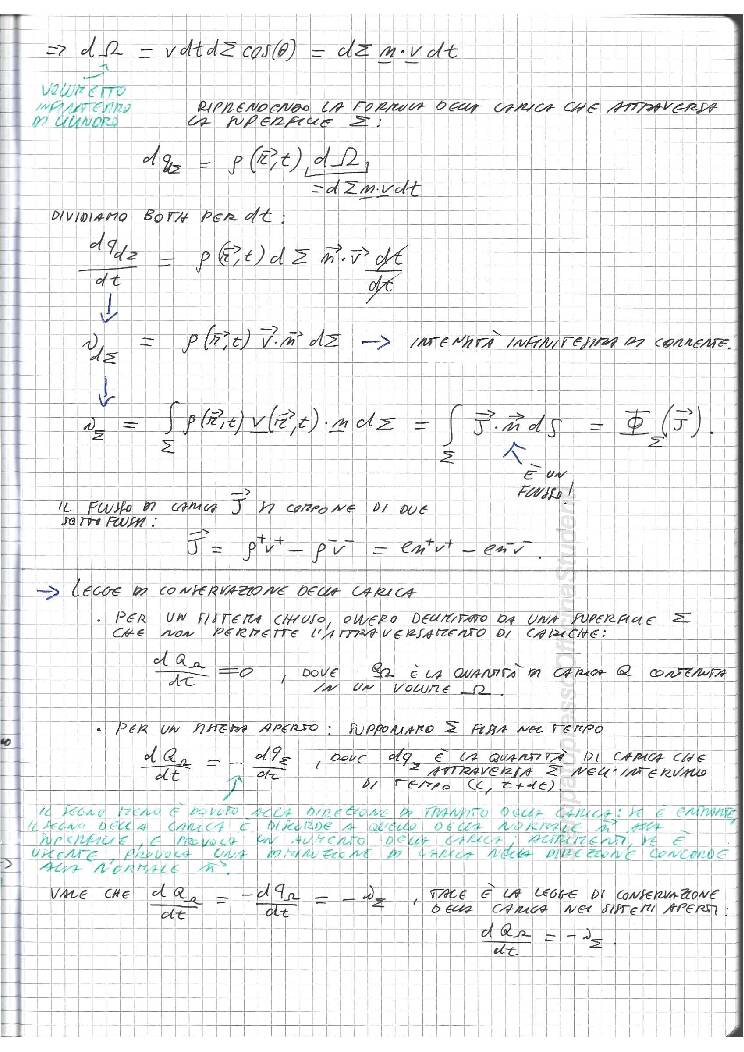 ⇒ dΩ = v dt dΣ cos(θ) = dΣ n · v dt
VOLUMETTO
INFINITESIMO
DI CILINDRO
RIPRENDENDO LA FORMULA DELLA CARICA CHE ATTRAVERSA
LA SUPERFICIE Σ:
dq_Σ = ρ(r⃗, t) dΩ
= dΣ n·v dt
DIVIDIAMO BOTH PER dt:
dq_dΣ / dt = ρ(r⃗, t) dΣ n⃗·v⃗ dt / dt
↓
i_dΣ = ρ(r⃗, t) v⃗·n⃗ dΣ → INTENSITÀ INFINITESIMA DI CORRENTE.
↓
i_Σ = ∫_Σ ρ(r⃗, t) v(r⃗, t) · n dΣ = ∫_Σ J⃗ · n⃗ dS = Φ_Σ (J⃗).
È UN
FLUSSO!
IL FLUSSO DI CARICA J⃗ SI COMPONE DI DUE
SOTTO FLUSSI:
J⃗ = ρ⁺v⁺ - ρ⁻v⁻ = en⁺v⁺ - en⁻v⁻.
→ LEGGE DI CONSERVAZIONE DELLA CARICA
• PER UN SISTEMA CHIUSO, OVVERO DELIMITATO DA UNA SUPERFICIE Σ
CHE NON PERMETTE L'ATTRAVERSAMENTO DI CARICHE:
dQ_Ω / dt = 0 , DOVE Q_Ω È LA QUANTITÀ DI CARICA Q CONTENUTA
IN UN VOLUME Ω.
• PER UN SISTEMA APERTO: SUPPONIAMO Σ FISSA NEL TEMPO
dQ_Ω / dt = - dq_Σ / dt , DOVE dq_Σ È LA QUANTITÀ DI CARICA CHE
ATTRAVERSA Σ NELL'INTERVALLO
DI TEMPO (t, t+dt)
IL SEGNO MENO È DOVUTO ALLA DIREZIONE DI TRANSITO DELLA CARICA: SE È ENTRANTE,
IL SEGNO DELLA CARICA È DISCORDE A QUELLO DELLA NORMALE n⃗ ALLA
SUPERFICIE, E PROVOCA UN AUMENTO DELLA CARICA; ALTRIMENTI, SE È
USCENTE, PROVOCA UNA DIMINUZIONE DI CARICA NELLA DIREZIONE CONCORDE
ALLA NORMALE n⃗.
VALE CHE dQ_Ω / dt = -dq_Ω / dt = -i_Σ , TALE È LA LEGGE DI CONSERVAZIONE
DELLA CARICA NEI SISTEMI APERTI:
dQ_Ω / dt = -i_Σ.